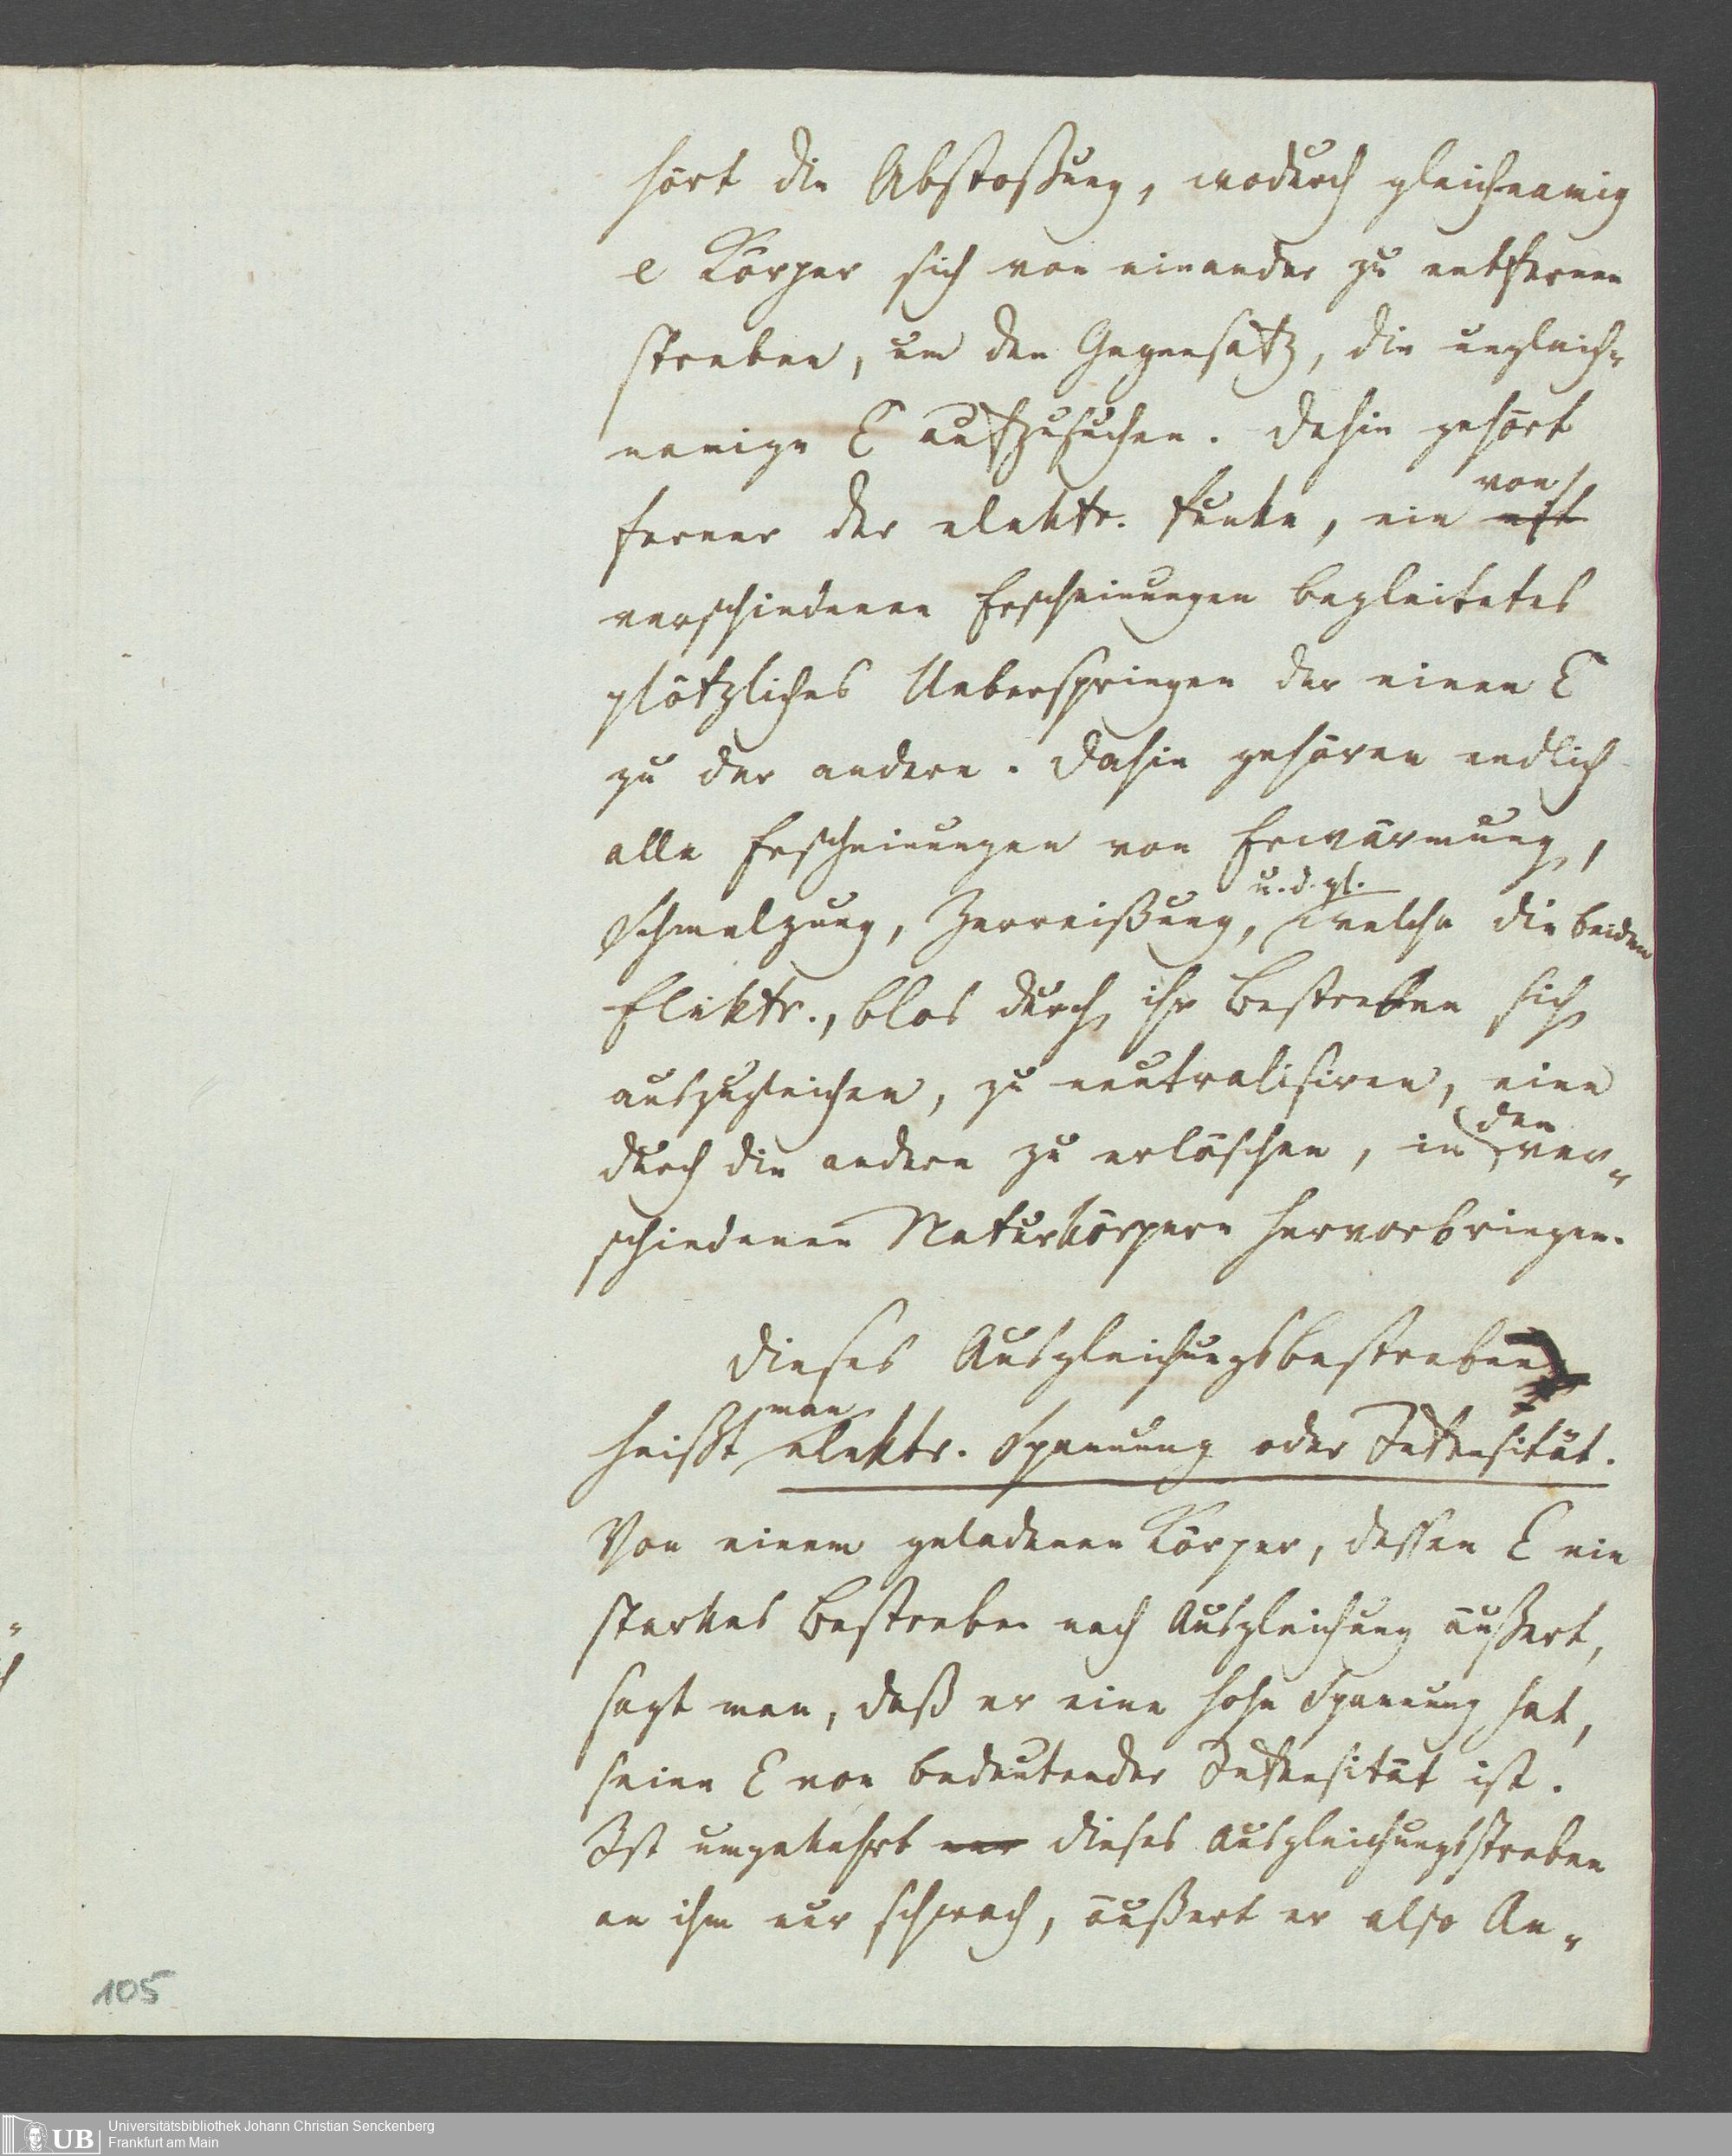 hört die Abstoßung, wodurch gleichnamig
e Körper sich von einander zu entfernen
streben, um den Gegensatz, die ungleich-
namige E aufzusuchen. Dahin gehört
ferner der elektr. Funke, ein von
verschiedenen Erscheinungen begleitetes
plötzliches Ueberspringen der einen E
zu der andern. Dahin gehören endlich
alle Erscheinungen von Erwärmung,
Schmelzung, Zerreißung, u. d. gl. welche die beiden
Elektr., blos durch ihr Bestreben sich
auszugleichen, zu neutralisiren, eine
durch die andere zu erlöschen, in den ver-
schiedenen Naturkörpern hervorbringen.
Dieses Ausgleichungsbestreben
heißt man elektr. Spannung oder Intensität.
Von einem geladenen Körper, dessen E ein
starkes Bestreben nach Ausgleichung äußert,
sagt man, daß er eine hohe Spannung hat,
seine E von bedeutender Intensität ist.
Ist umgekehrt dieses Ausgleichungsstreben
an ihm nur schwach, äußert er also An-
105
UB Universitätsbibliothek Johann Christian Senckenberg
Frankfurt am Main